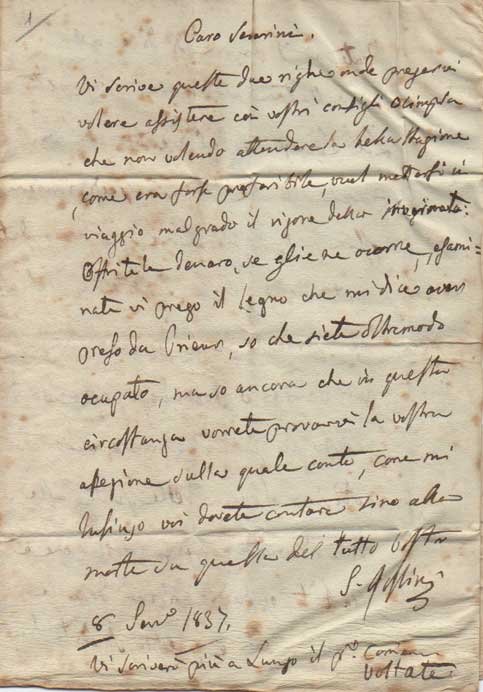 1
Caro Severini.
Vi scrivo queste due righe onde pregarvi
volere assistere coi vostri consigli Olimpia
che non volendo attendere la bella stagione
come era forse preferibile, vuol mettersi in
viaggio malgrado il rigore della
Offritele denaro, se gliene ocorre, esami=
nate vi prego il legno che mi dice aver
preso da so che siete oltremodo
ocupato, ma so ancora che in questa
circostanza vorrete provarmi la vostra
afezione sulla quale conto, come mi
lusingo voi dovete contare sino alla
morte su quella del tutto vostro
8 Gen.º 1837.
Vi scriverò più a lungo il p.º
voltate